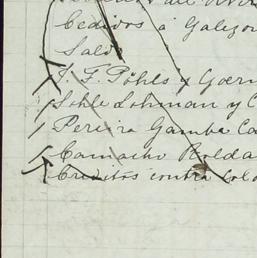 Cedidos á Galego
Saldo
J. F. Pöhls y Goern
Sohle Lohman y C
Pereira Gamba Ca
Camacho Rolda
Creditos contra Col